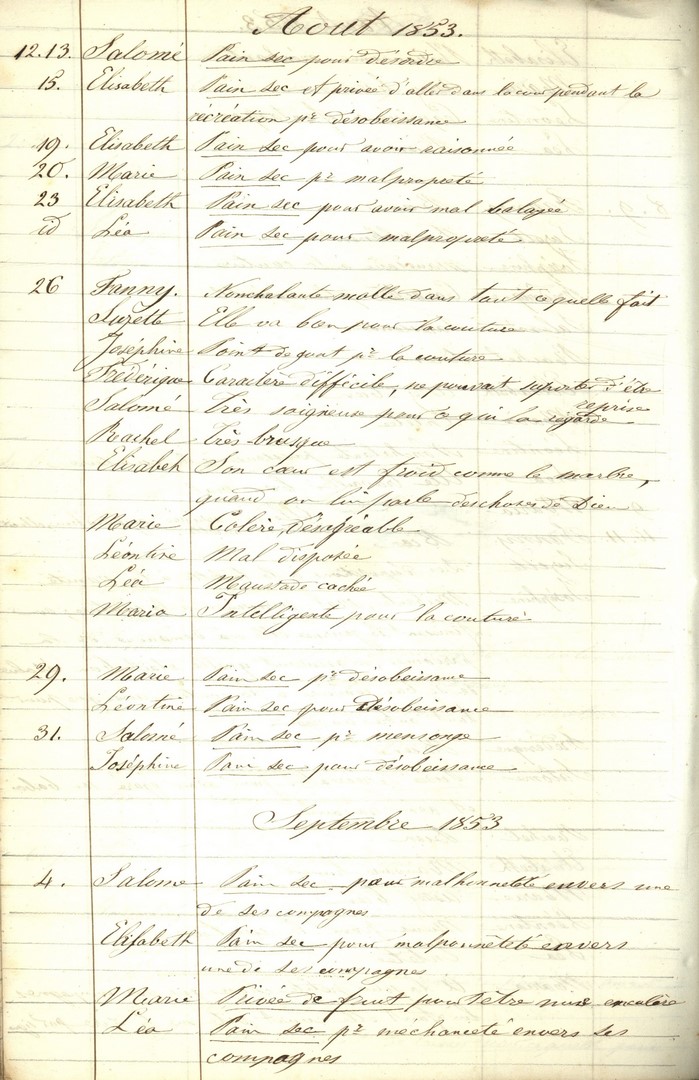 Aout 1853.
12.13. Salomé Pain sec pour désordre
15. Elisabeth Pain sec et privée d'aller dans la cour pendant la
récréation pr désobeissance
19. Elisabeth Pain sec pour avoir raisonnée
20. Marie Pain sec pr malpropreté
23 Elisabeth Pain sec pour avoir mal balayée
id Léa Pain sec pour malpropreté
26 Fanny. Nonchalante molle dans tout ce quelle fait
Suzette Elle va bien pour la couture
Joséphine Point de gout pr la couture
Frédérique Caractère difficile, ne pouvait suporter d'être
reprise
Salomé très soigneuse pour ce qui la regarde
Rachel très-brusque
Elisabeh Son cœur est froid comme le marbre,
quand on lui parle des choses de Dieu
Marie Colère, désagréable
Léontine Mal disposée
Léa Maussade cachée
Maria Intelligente pour la couture
29. Marie Pain sec pr désobeissance
Léontine Pain sec pour Désobeissance
31. Salomé Pain sec pr mensonge
Joséphine Pain sec pour désobeissance
Septembre 1853
4. Salome Pain sec pour malhonnetété envers une
de ses compagnes
Elisabeth Pain sec pour malhonnêteté envers
une de ses compagnes
Marie Privée de fruit pour s'être mise en colère
Léa Pain sec pr méchanceté envers ses
compagnes